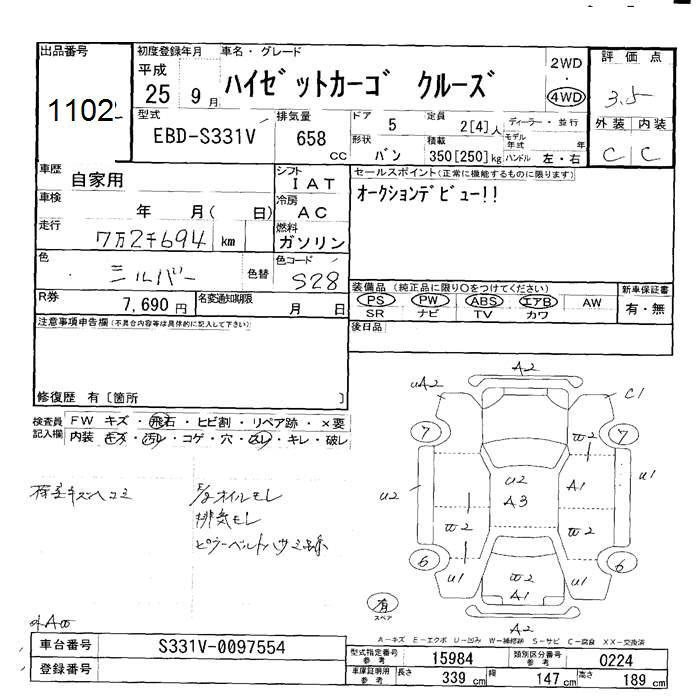 出品番号
1102
初度登録年月
平成
25 9月
車名・グレード
ハイゼットカーゴ クルーズ
2WD
・
4WD
評価点
3.5
型式
EBD-S331V
排気量
658
cc
ドア 5
定員 2[4]人
形状 バン
積載 350[250]kg
ディーラー・並行
モデル年式 年
ハンドル 左・右
外装 内装
C C
車歴 自家用
シフト IAT
セールスポイント(正常に機能するものに限ります)
オークションデビュー!!
車検 年 月( 日)
冷房 AC
走行 7万2千694 km
燃料 ガソリン
色 シルバー 色替
色コード S28
R券 7,690円
名変通知期限 月 日
装備品 (純正品に限り〇をつけてください)
PS PW ABS エアB AW
SR ナビ TV カワ
新車保証書
有・無
注意事項申告欄(不具合内容等は具体的に記入して下さい)
後日品
修復歴 有〔箇所 〕
検査員記入欄
FW キズ・飛石・ヒビ割・リペア跡・×要
内装 キズ・汚レ・コゲ・穴・スレ・キレ・破レ
キズヘコミ
オイルモレ
排気モレ
ピラーベルトハサミ
外A
A2
uA2
C1
7
7
u2
u2
A3
A1
u1
6
6
u1
u1
A1
A2
有
スペア
A-キズ E-エクボ U-凹み W-補修跡 S-サビ C-腐食 XX-交換済
車台番号 S331V-0097554
登録番号
型式指定番号 参考 15984
類別区分番号 参考 0224
車庫証明用 参考
長さ 339 cm
幅 147 cm
高さ 189 cm